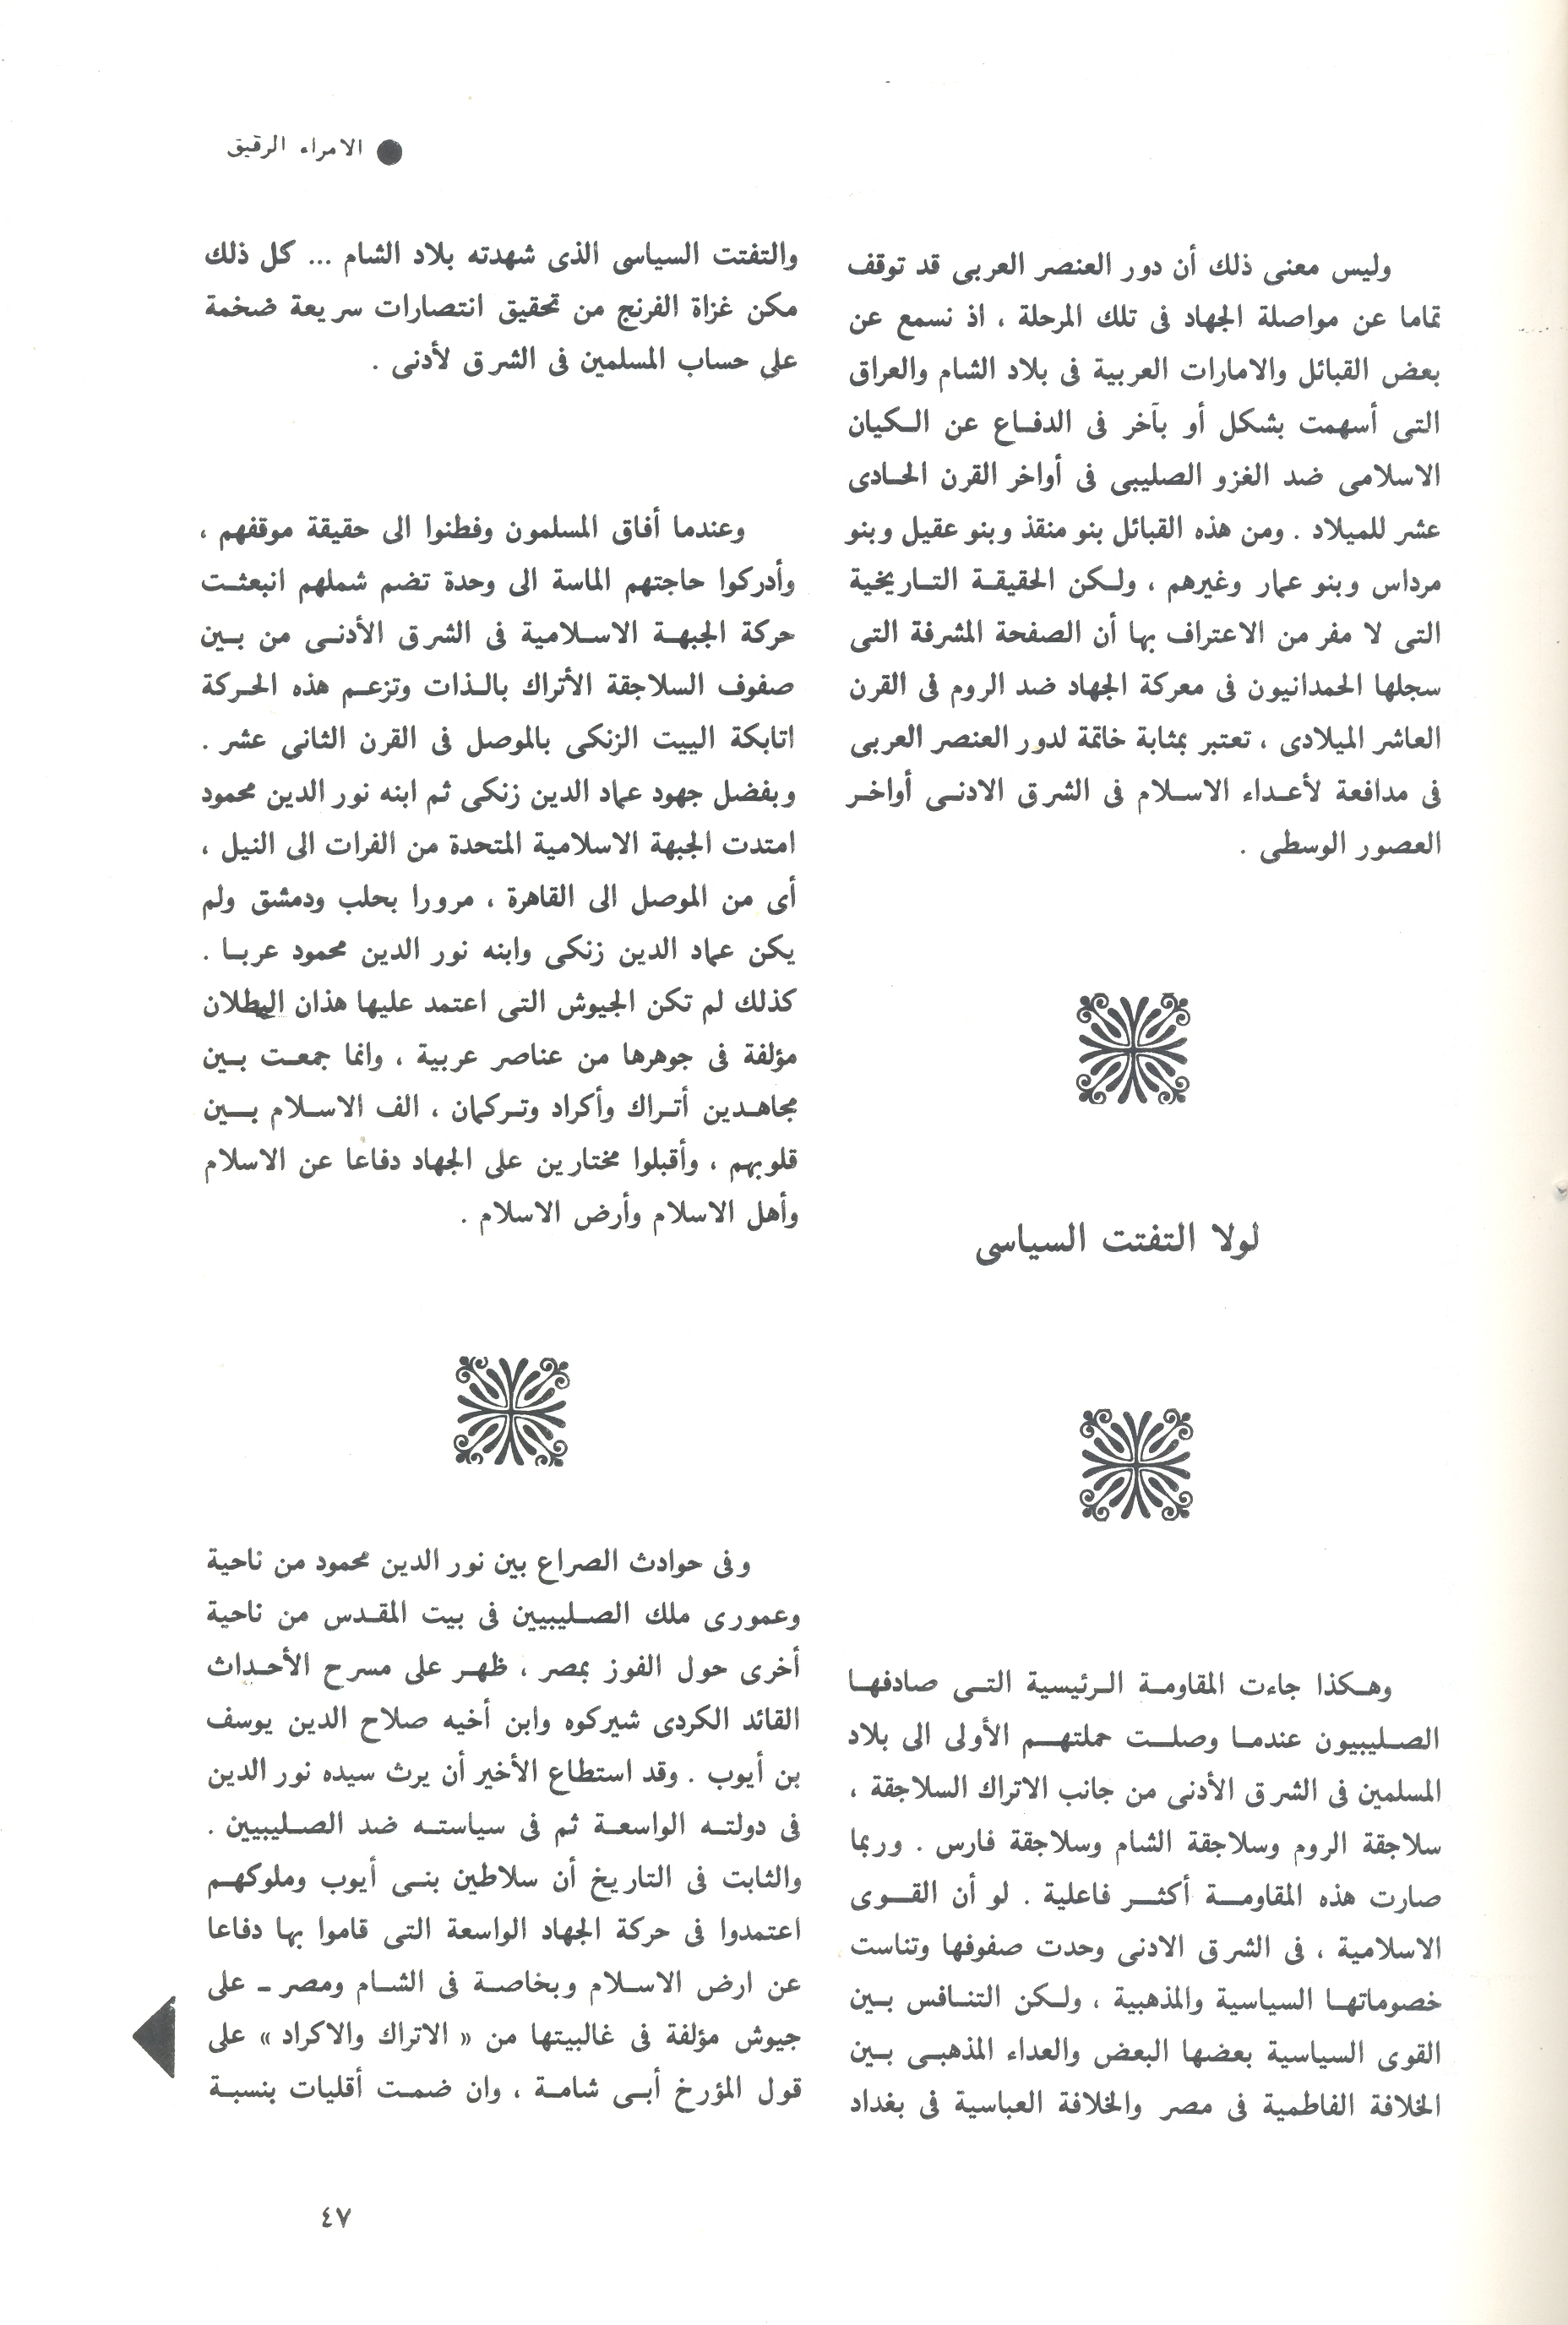 ● الامراء الرقيق
وليس معنى ذلك أن دور العنصر العربى قد توقف
تماما عن مواصلة الجهاد فى تلك المرحلة ، اذ نسمع عن
بعض القبائل والامارات العربية فى بلاد الشام والعراق
التى أسهمت بشكل أو بآخر فى الدفاع عن الكيان
الاسلامى ضد الغزو الصليبى فى أواخر القرن الحادى
عشر للميلاد . ومن هذه القبائل بنو منقذ وبنو عقيل وبنو
مرداس وبنو عمار وغيرهم ، ولكن الحقيقة التاريخية
التى لا مفر من الاعتراف بها أن الصفحة المشرفة التى
سجلها الحمدانيون فى معركة الجهاد ضد الروم فى القرن
العاشر الميلادى ، تعتبر بمثابة خاتمة لدور العنصر العربى
فى مدافعة لأعداء الاسلام فى الشرق الادنى أواخر
العصور الوسطى .
لولا التفتت السياسى
وهكذا جاءت المقاومة الرئيسية التى صادفها
الصليبيون عندما وصلت حملتهم الأولى الى بلاد
المسلمين فى الشرق الأدنى من جانب الاتراك السلاجقة ،
سلاجقة الروم وسلاجقة الشام وسلاجقة فارس . وربما
صارت هذه المقاومة أكثر فاعلية . لو أن القوى
الاسلامية ، فى الشرق الادنى وحدت صفوفها وتناست
خصوماتها السياسية والمذهبية ، ولكن التنافس بين
القوى السياسية بعضها البعض والعداء المذهبى بين
الخلافة الفاطمية فى مصر والخلافة العباسية فى بغداد
والتفتت السياسى الذى شهدته بلاد الشام ... كل ذلك
مكن غزاة الفرنج من تحقيق انتصارات سريعة ضخمة
على حساب المسلمين فى الشرق لأدنى .
وعندما أفاق المسلمون وفطنوا الى حقيقة موقفهم ،
وأدركوا حاجتهم الماسة الى وحدة تضم شملهم انبعثت
حركة الجبهة الاسلامية فى الشرق الأدنى من بين
صفوف السلاجقة الأتراك بالذات وتزعم هذه الحركة
اتابكة البيت الزنكى بالموصل فى القرن الثانى عشر .
وبفضل جهود عماد الدين زنكى ثم ابنه نور الدين محمود
امتدت الجبهة الاسلامية المتحدة من الفرات الى النيل ،
أى من الموصل الى القاهرة ، مرورا بحلب ودمشق ولم
يكن عماد الدين زنكى وابنه نور الدين محمود عربا .
كذلك لم تكن الجيوش التى اعتمد عليها هذان البطلان
مؤلفة فى جوهرها من عناصر عربية ، وانما جمعت بين
مجاهدين أتراك وأكراد وتركمان ، الف الاسلام بين
قلوبهم ، وأقبلوا مختارين على الجهاد دفاعا عن الاسلام
وأهل الاسلام وأرض الاسلام .
وفى حوادث الصراع بين نور الدين محمود من ناحية
وعمورى ملك الصليبيين فى بيت المقدس من ناحية
أخرى حول الفوز بمصر ، ظهر على مسرح الأحداث
القائد الكردى شيركوه وابن أخيه صلاح الدين يوسف
بن أيوب . وقد استطاع الأخير أن يرث سيده نور الدين
فى دولته الواسعة ثم فى سياسته ضد الصليبيين .
والثابت فى التاريخ أن سلاطين بنى أيوب وملوكهم
اعتمدوا فى حركة الجهاد الواسعة التى قاموا بها دفاعا
عن ارض الاسلام وبخاصة فى الشام ومصر - على
جيوش مؤلفة فى غالبيتها من « الاتراك والاكراد » على
قول المؤرخ أبى شامة ، وان ضمت أقليات بنسبة
٤٧